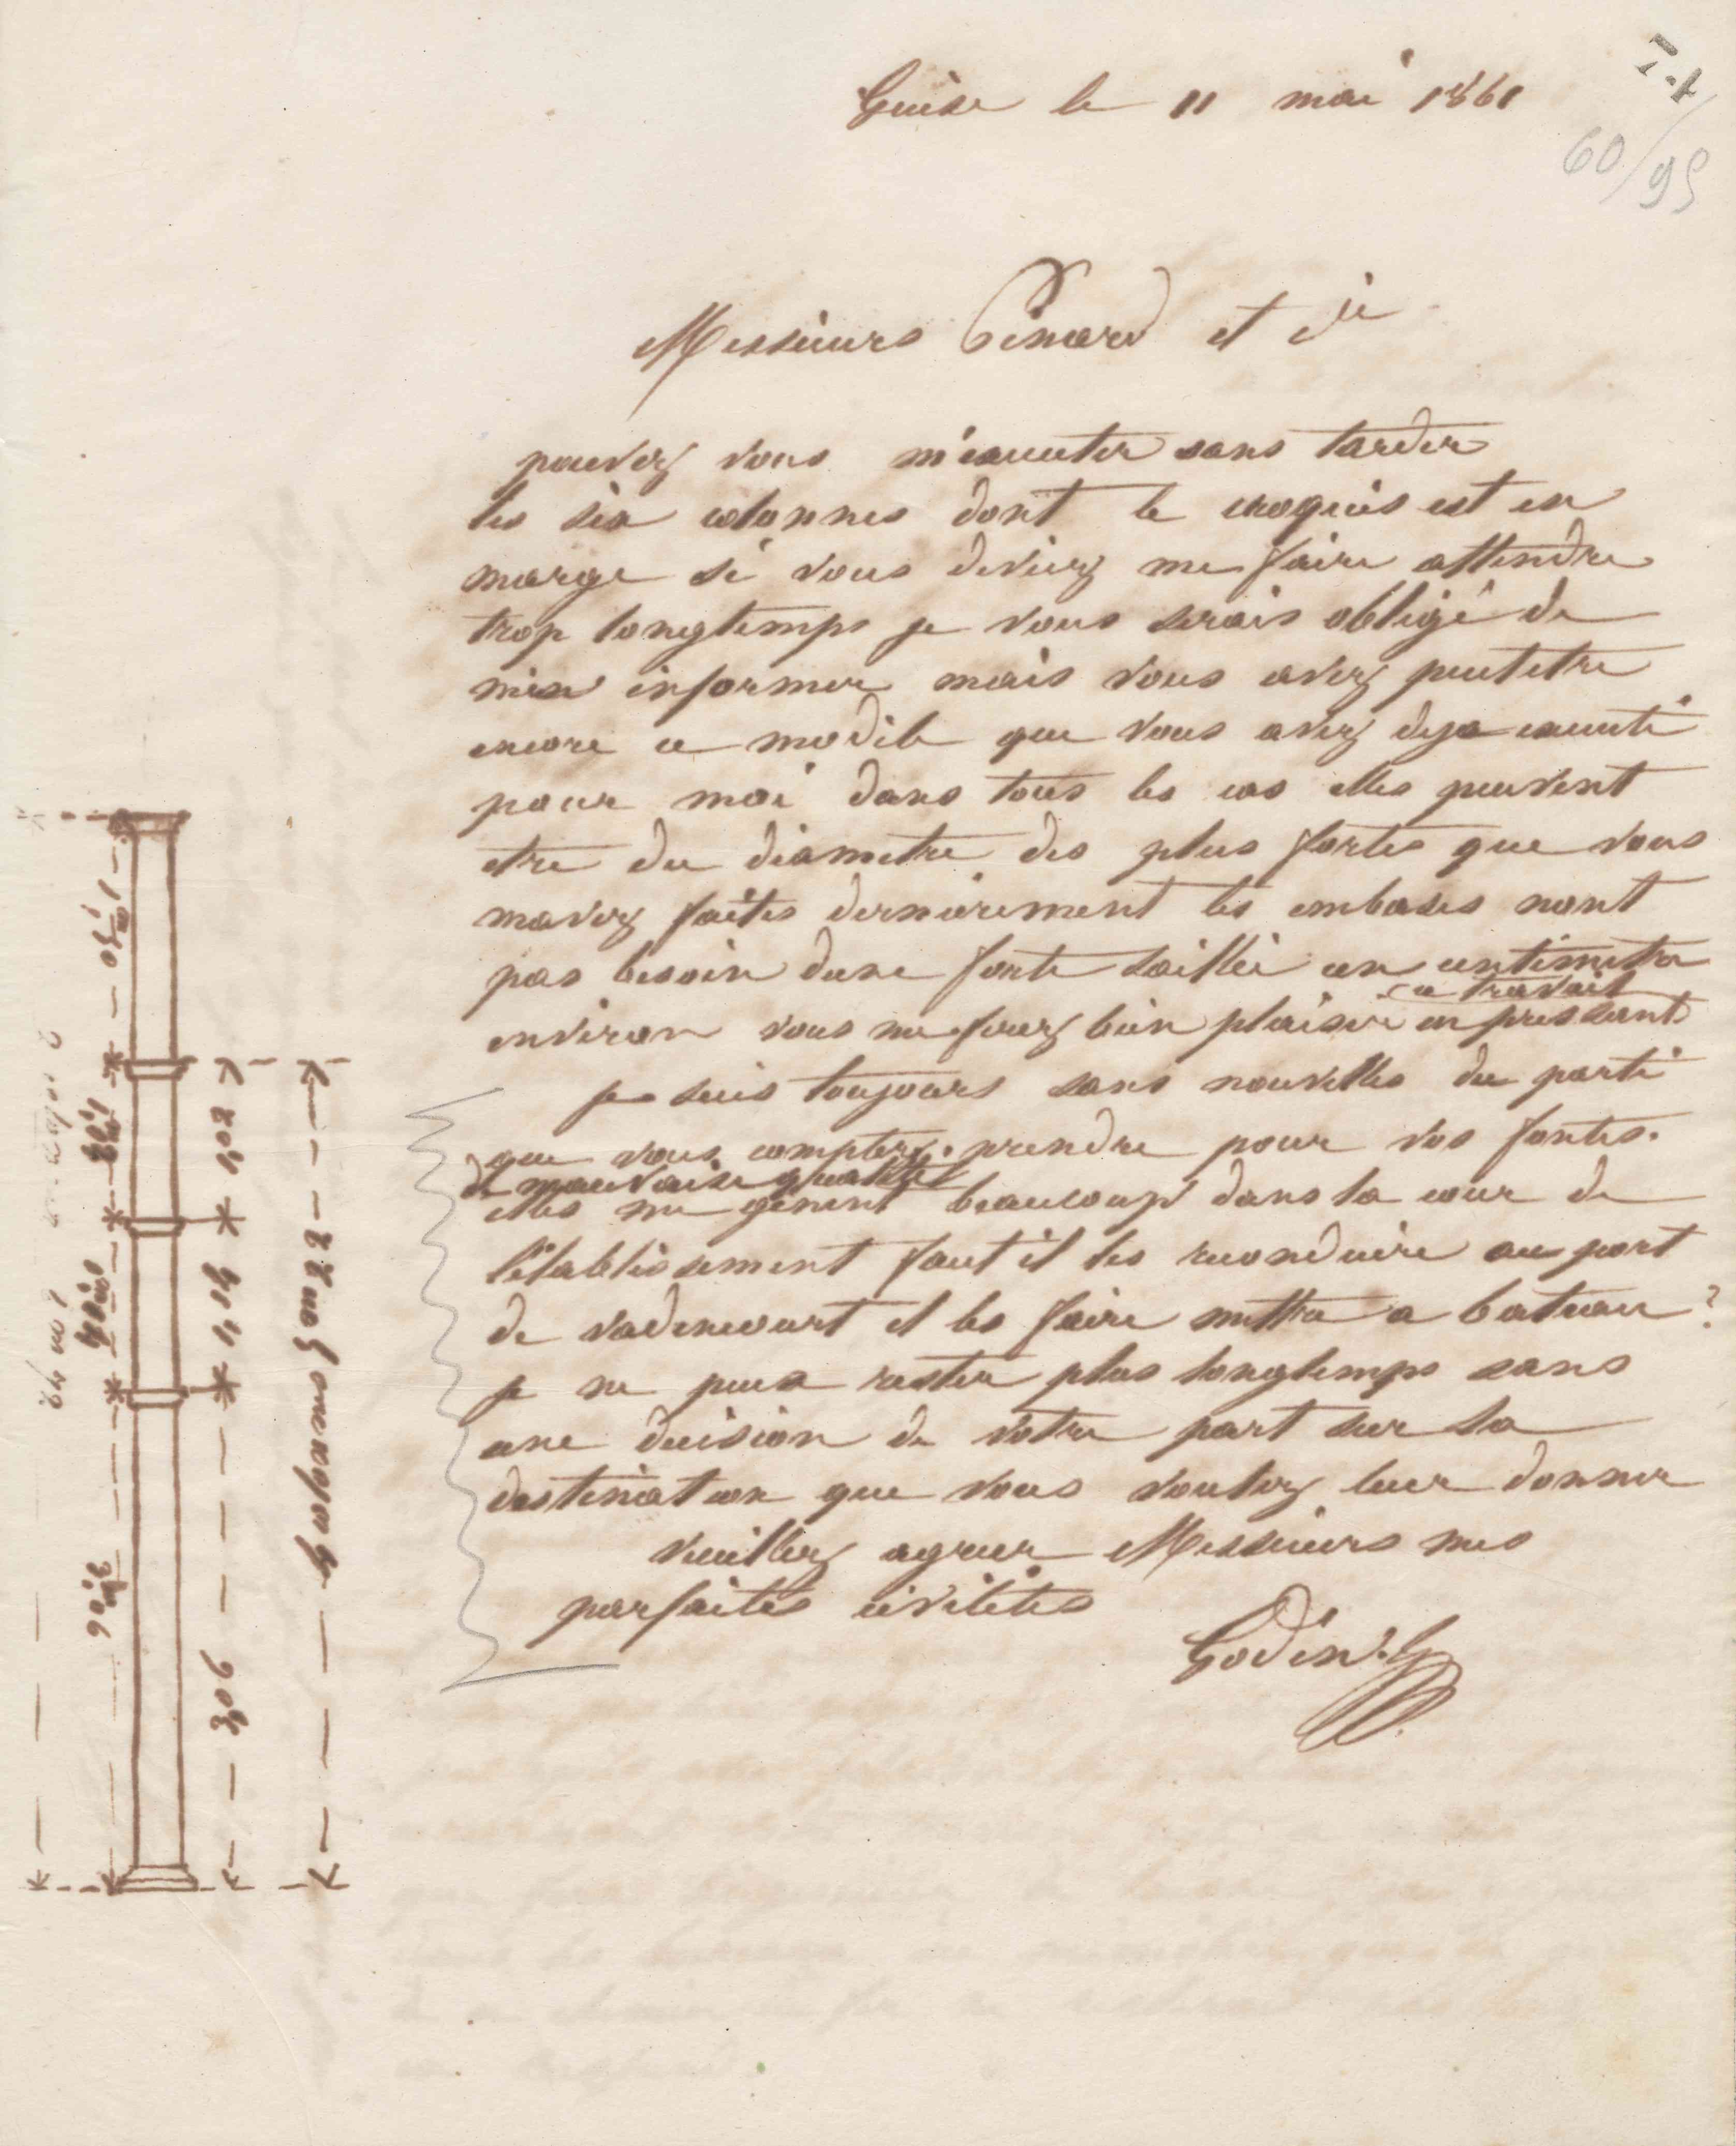 Guise le 11 mai 1861
T.4
60/95
Messieurs Pinard et Cie
pouvez vous m'executer sans tarder
les six colonnes dont le croquis est en
marge si vous deviez me faire attendre
trop longtemps je vous serais obligé de
men informer mais vous avez peutetre
encore ce modele que vous avez deja executé
pour moi dans tous les cas elles peuvent
etre du diametre des plus fortes que vous
mavez faites dernierement les embases nont
pas besoin dune forte saillie un centimetre
environ vous me ferez bien plaisir en pressant
ce travail
je suis toujours sans nouvelles du parti
que vous comptez prendre pour vos fontes
de mauvaise qualité
elles me gênent beaucoup dans la cour de
l'etablissement faut il les reconduire au port
de vadencourt et les faire mettre a bateau ?
je ne peux rester plus longtemps sans
une decision de votre part sur la
destination que vous voulez leur donner
veuillez agreer Messieurs mes
parfaites civilités
Godin
1m,30
1,02
1,14
3,06
4 colonnes 5m22